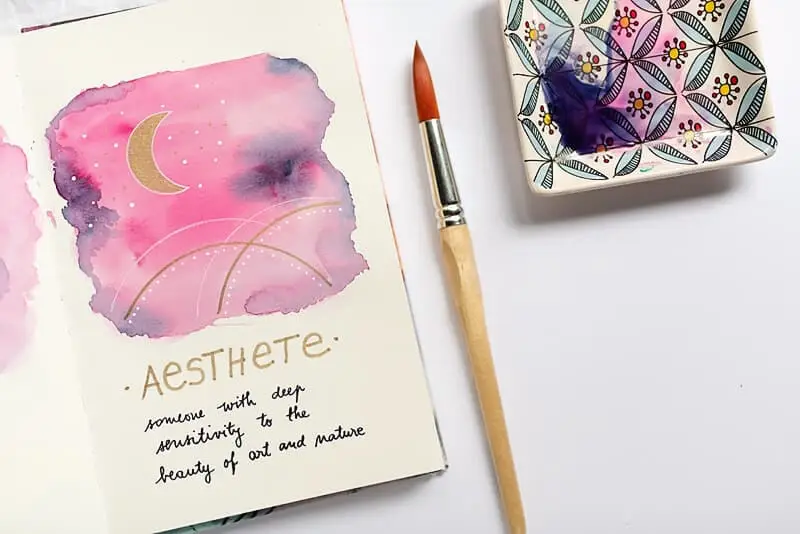 · AESTHETE ·
someone with deep
sensitivity to the
beauty of art and nature